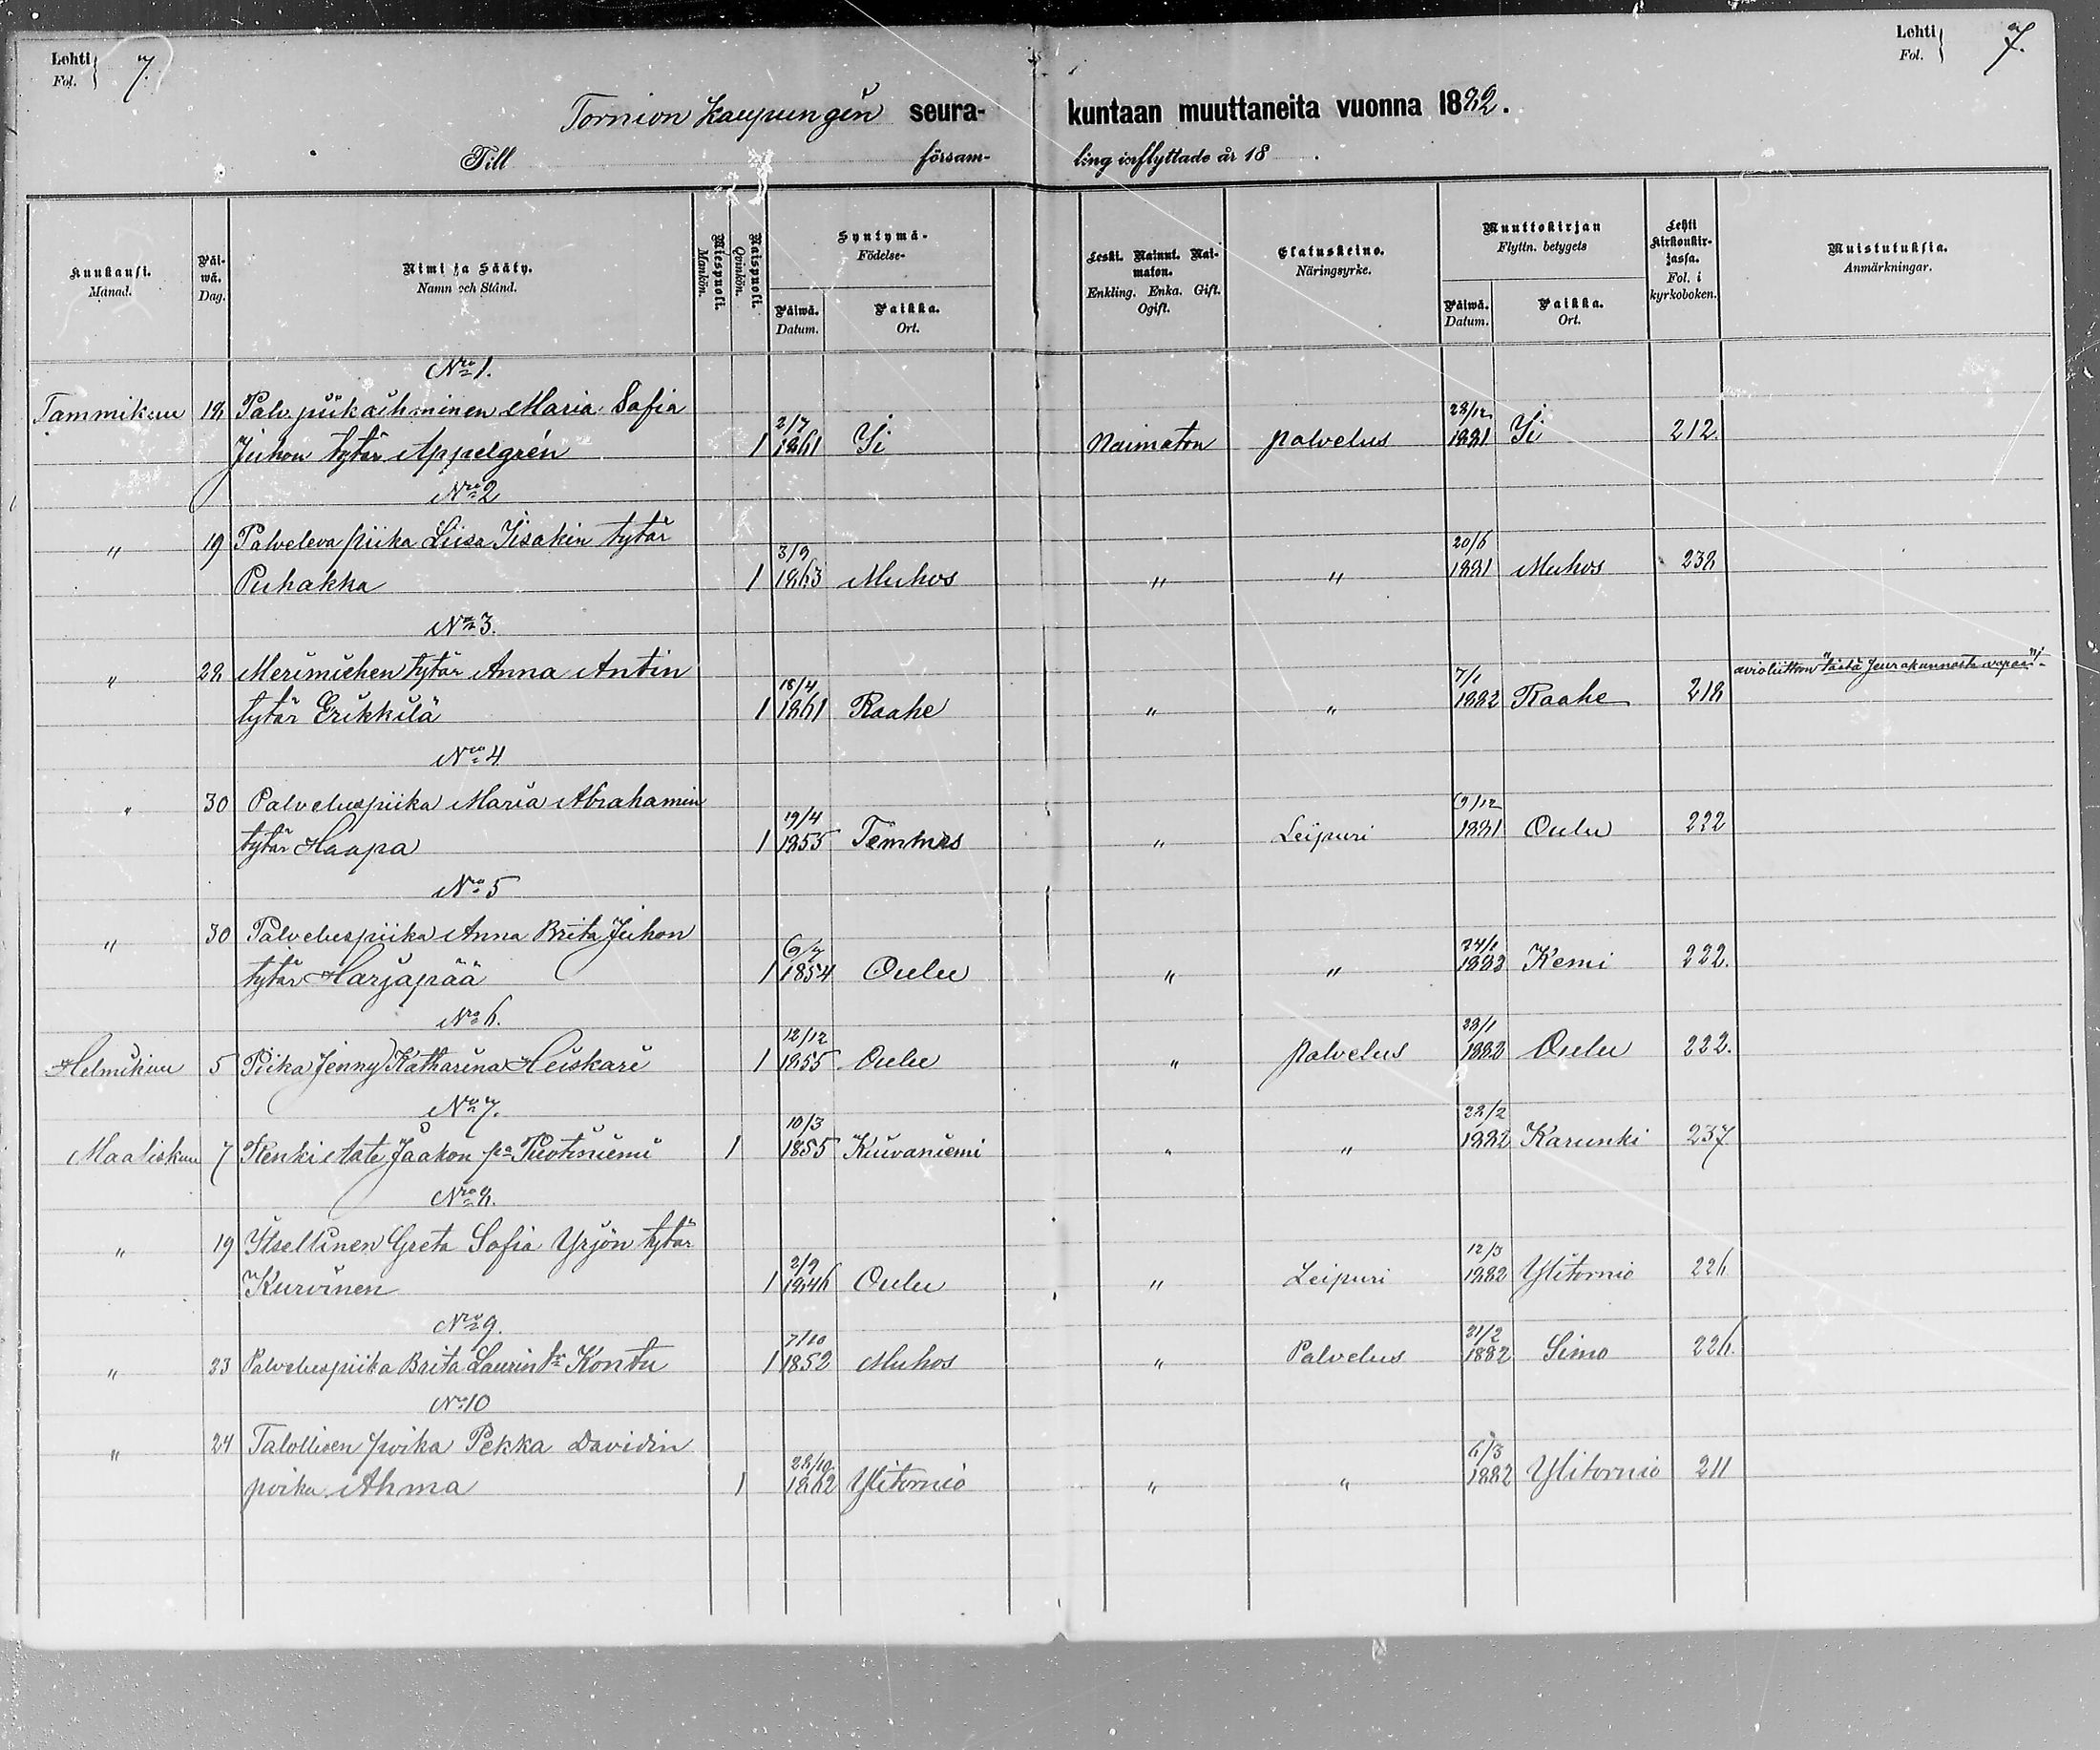 Lehti 7. Lehti 7.
Fol. Fol.
Tornion Kaupungin seura- kuntaan muuttaneita vuonna 1882.
Till försam- ling inflyttade år 18 .
Kuukausi. Månad. Päiwä. Dag. Nimi ja Sääty. Namn och Stånd. Miespuoli. Mankön. Naispuoli. Qvinkön. Syntymä- Födelse- Päiwä. Datum. Paikka. Ort. Leski. Nainut. Naimaton. Enkling. Enka. Gift. Ogift. Elatuskeino. Näringsyrke. Muuttokirjan Flyttn. betygets Päiwä. Datum. Paikka. Ort. Lehti Kirkonkirjassa. Fol. i kyrkoboken. Muistutuksia. Anmärkningar.
Nro 1.
Tammikuu 18 Palv. piikaihminen Maria Sofia 2/7 28/12
Juhon tytär Appelgrén 1 1861 Ii Naimaton palvelus 1881 Ii 212
Nro 2
" 19 Palveleva piika Liisa Iisakin tytär 3/9 20/6
Puhakka 1 1863 Muhos " " 1881 Muhos 238
Nro 3.
" 28 Merimiehen tytär Anna Antin 18/4 7/1 avioliittoon tästä seurakunnasta vapaa
tytär Erikkilä 1 1861 Raahe " " 1882 Raahe 218
Nro 4
" 30 Palveluspiika Maria Abrahamin 19/4 9/12
tytär Haapa 1 1855 Temmes " Leipuri 1881 Oulu 222
Nro 5
" 30 Palveluspiika Anna Brita Juhon 9/7 24/1
tytär Harjapää 1 1854 Oulu " " 1882 Kemi 222.
Nro 6. 12/12 28/1
Helmikuu 5 Piika Jenny Katharina Heiskari 1 1855 Oulu " palvelus 1882 Oulu 222.
Nro 7. 10/3 28/2
Maaliskuu 7 Renki Aate Jaakon pa 1 1855 Kuivaniemi " " 1882 Karunki 237
Nro 8.
" 19 Itsellinen Greta Sofia Yrjön tytär 2/9 12/3
Kurvinen 1 1846 Oulu " Leipuri 1882 Ylitornio 226
Nro 9. 7/10 21/2
" 23 Palveluspiika Brita Laurin tr Kontu 1 1852 Muhos " Palvelus 1882 Simo 226
Nro 10
" 24 Talollisen poika Pekka Davidin 28/10 6/3
poika Ahma 1 1862 Ylitornio " " 1882 Ylitornio 211